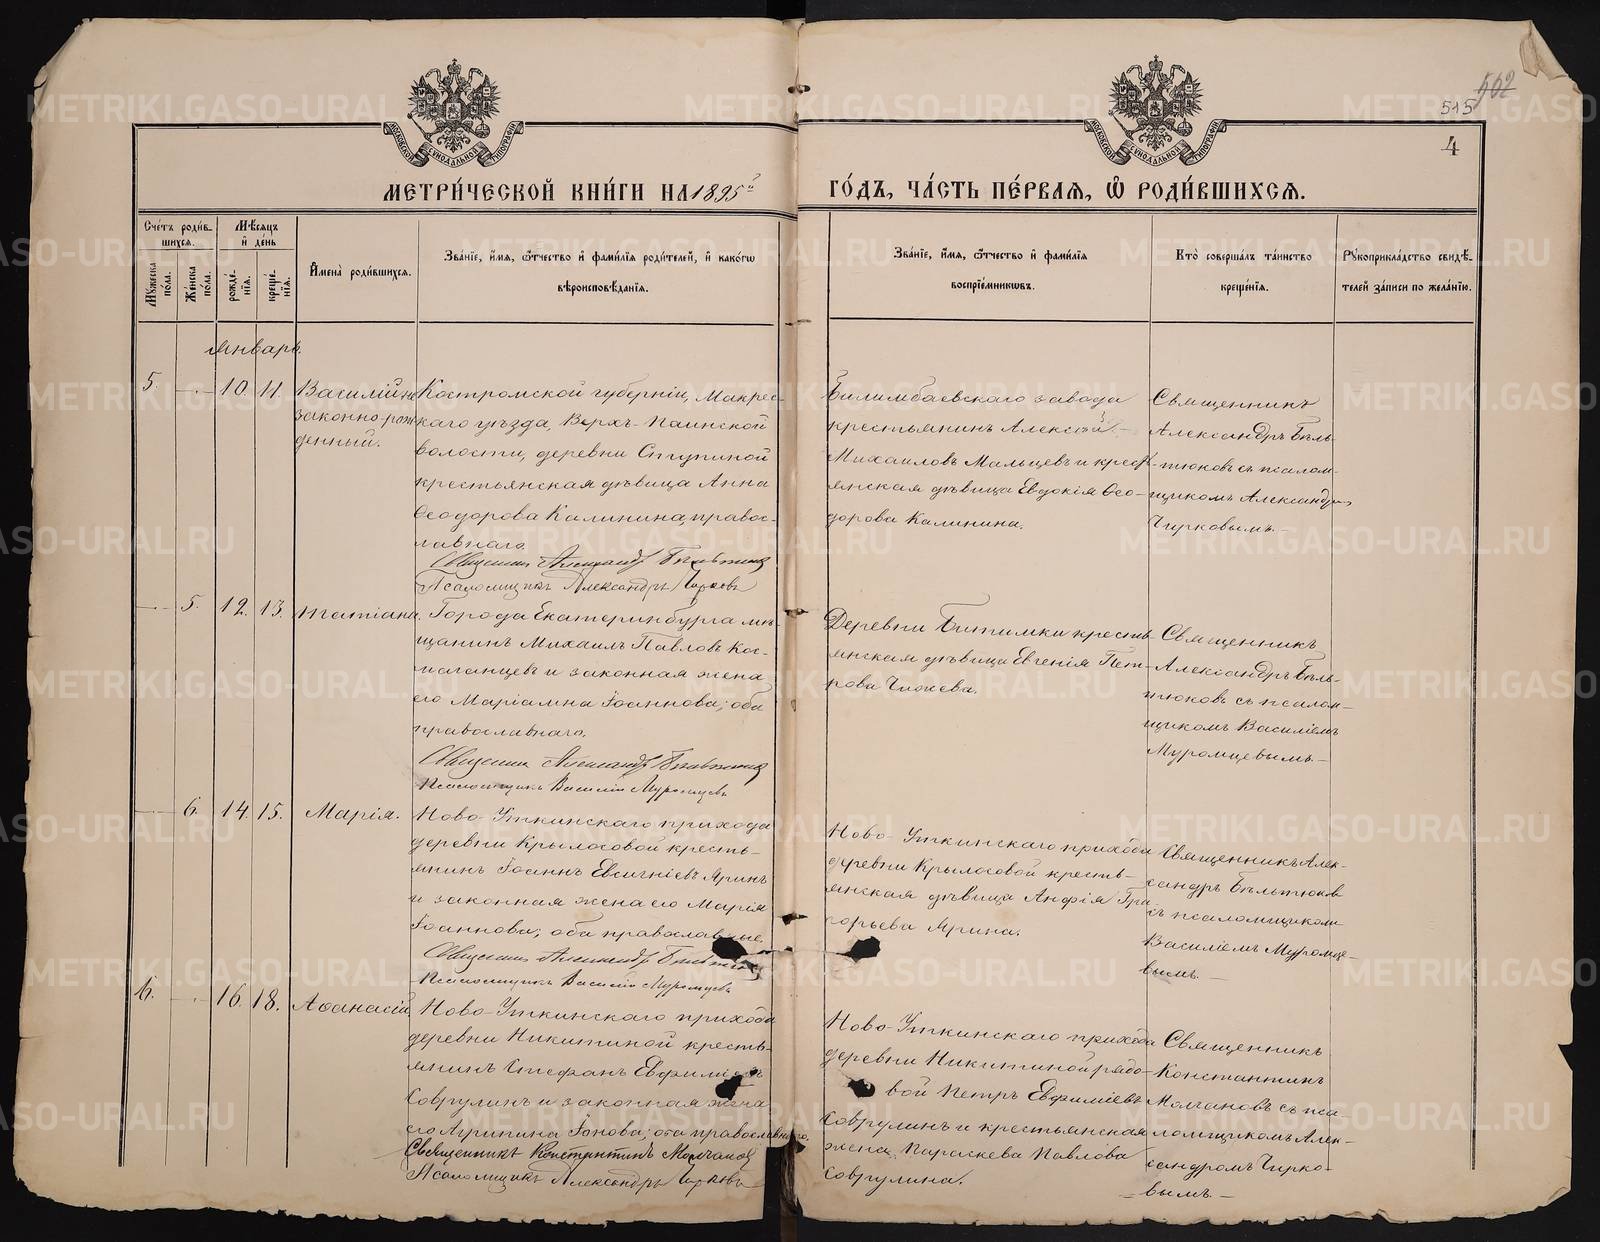 562
515
4
МОСКОВСКОЙ СѴНОДАЛЬНОЙ ТИПОГРАФІИ
МОСКОВСКОЙ СѴНОДАЛЬНОЙ ТИПОГРАФІИ
МЕТРИ́ЧЕСКОЙ КНИ́ГИ НА 1895й ГО́ДЪ, ЧА́СТЬ ПЕ́РВАЯ, Ѽ РОДИ́ВШИХСЯ.
Сче́тъ роди́в-
шихся.
Мѣ́сяцъ
и҆ де́нь
Мꙋ́жеска по́ла.
Же́нска по́ла.
рожде́-
нїѧ.
креще́-
нїѧ.
И҆мена̀ роди́вшихсѧ.
Зва́нїе, и҆́мѧ, ѻ҆́тчество и҆ фами́лїѧ роди́телей, и҆ како́гѡ
вѣроисповѣ́данїѧ.
Зва́нїе, и҆́мѧ, ѻ҆́тчество и҆ фами́лїѧ
воспрїе́мникѡвъ.
Кто̀ соверша́лъ та́инство
креще́нїѧ.
Рꙋкоприкла́дство свидѣ́-
телей за́писи по жела́нїю.
Январь.
5. — 10. 11.
Василій не
законно рож
денный.
Костромской губерніи, Макрес-
каго уѣзда, Верхъ-Паинской
волости, деревни Ступиной
крестьянская дѣвица Анна
Ѳеодорова Калинина, правос-
лавнаго.
Священникъ Александръ Бѣльтюковъ
Псаломщикъ Александръ Чирковъ
Билимбаевскаго завода
крестьянинъ Алексѣй
Михаиловъ Мальцевъ и крест-
янская дѣвица Евдокія Ѳео-
дорова Калинина.
Священникъ
Александръ Бѣль-
тюковъ съ псалом-
щикомъ Александр
Чирковымъ. —
— 5. 12. 13.
Татіана.
Города Екатеринбурга мѣ-
щанинъ Михаилъ Павловъ Кос-
таганцевъ и законная жена
его Маріамна Іоаннова; оба
православнаго.
Священникъ Александръ Бѣльтюковъ
Псаломщикъ Василій Муромцевъ
Деревни Битимки кресть-
янская дѣвица Евгенія Пет-
рова Чижева.
Священникъ
Александръ Бѣль-
тюковъ съ псалом-
щикомъ Василіемъ
Муромцевымъ. —
— 6. 14. 15.
Марія.
Ново-Уткинскаго прихода
деревни Крылосовой кресть-
янинъ Іоаннъ Евсигніевъ Яринъ
и законная жена его Марія
Іоаннова; оба православные.
Священникъ Александръ Бѣльтюковъ
Псаломщикъ Василій Муромцевъ
Ново-Уткинскаго прихода
деревни Крылосовой кресть-
янская дѣвица Анфія Гри-
горьева Ярина.
Священникъ Алек-
сандръ Бѣльтюковъ
съ псаломщикомъ
Василіемъ Муромце-
вымъ. —
6. — 16. 18.
Аѳанасій.
Ново-Уткинскаго прихода
деревни Никитиной кресть-
янинъ Стефанъ Евфиміевъ
Соврулинъ и законная жена
его Агрипина Іонова; ота православнаго.
Священникъ Константинъ Молчановъ
Псаломщикъ Александръ Чирковъ
Ново-Уткинскаго прихода
деревни Никитиной рядо-
вой Петръ Евфиміевъ
Соврулинъ и крестьянская
жена Параскева Павлова
Соврулина.
Священникъ
Константинъ
Молчановъ съ пса-
ломщикомъ Алек-
сандромъ Чирко-
вымъ. —